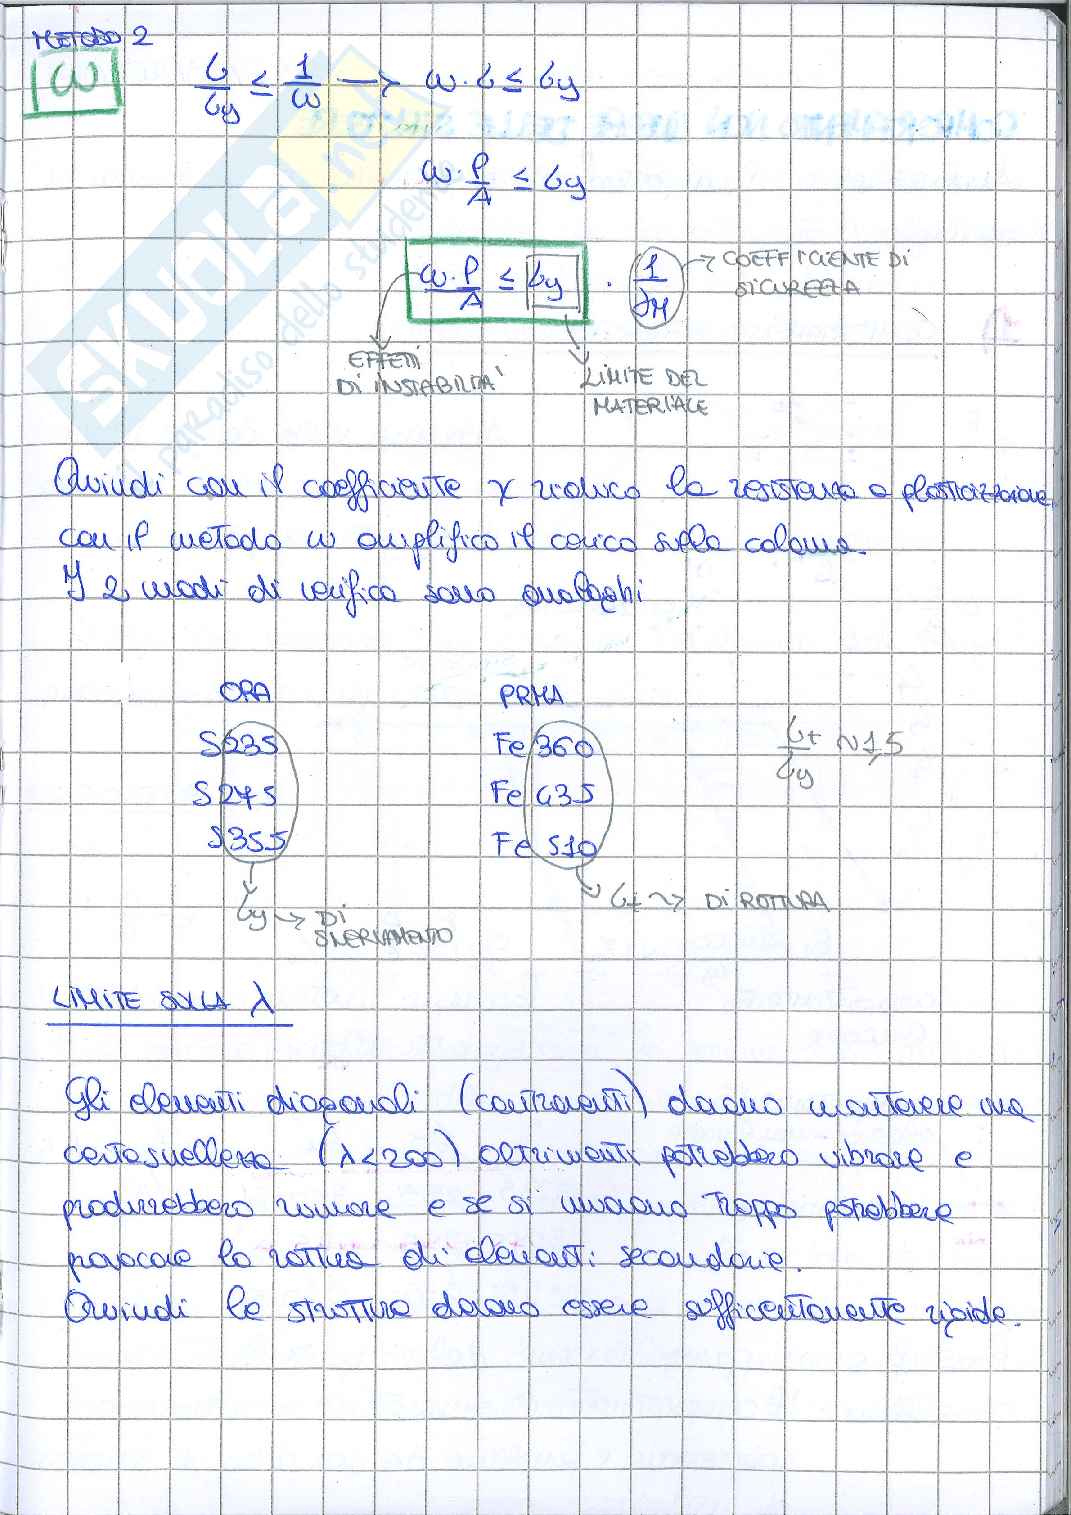 METODO 2
ω
σ/σy ≤ 1/ω → ω·σ ≤ σy
ω·P/A ≤ σy
ω·P/A ≤ σy · 1/γM → COEFFICIENTE DI SICUREZZA
EFFETTI DI INSTABILITA'
LIMITE DEL MATERIALE
Quindi con il coefficiente χ riduco la resistenza a plasticizzazione,
con il metodo ω amplifico il carico sulla colonna.
I 2 modi di verifica sono analoghi
ORA PRIMA
S235 Fe 360 σt/σy ~1,5
S275 Fe 435
S355 Fe 510
σt ~> DI ROTTURA
σy → DI SNERVAMENTO
LIMITE SULLA λ
Gli elementi diagonali (controventi) devono mantenere una
certa snellezza (λ<200) altrimenti potrebbero vibrare e
produrrebbero rumore e se si muovono troppo potrebbere
provocare la rottura di elementi secondarie.
Quindi le strutture devono essere sufficentemente rigide.
SKUOLA.net
il paradiso dello studente